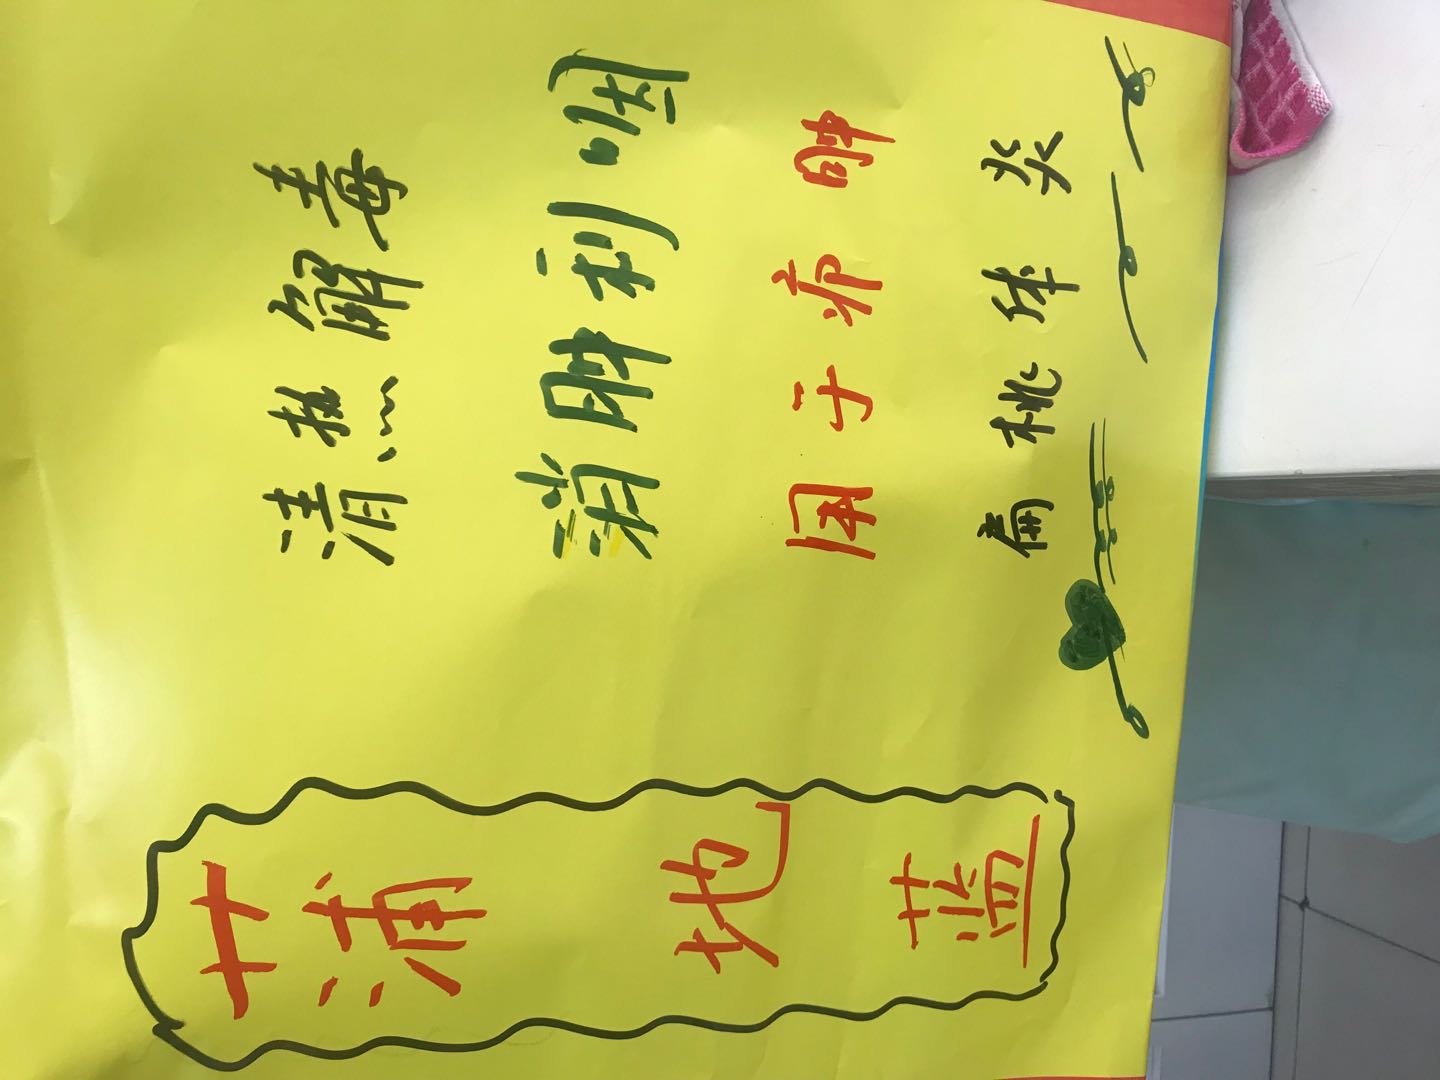 蒲地蓝
清热解毒
消肿利咽
用于疖肿
扁桃体炎